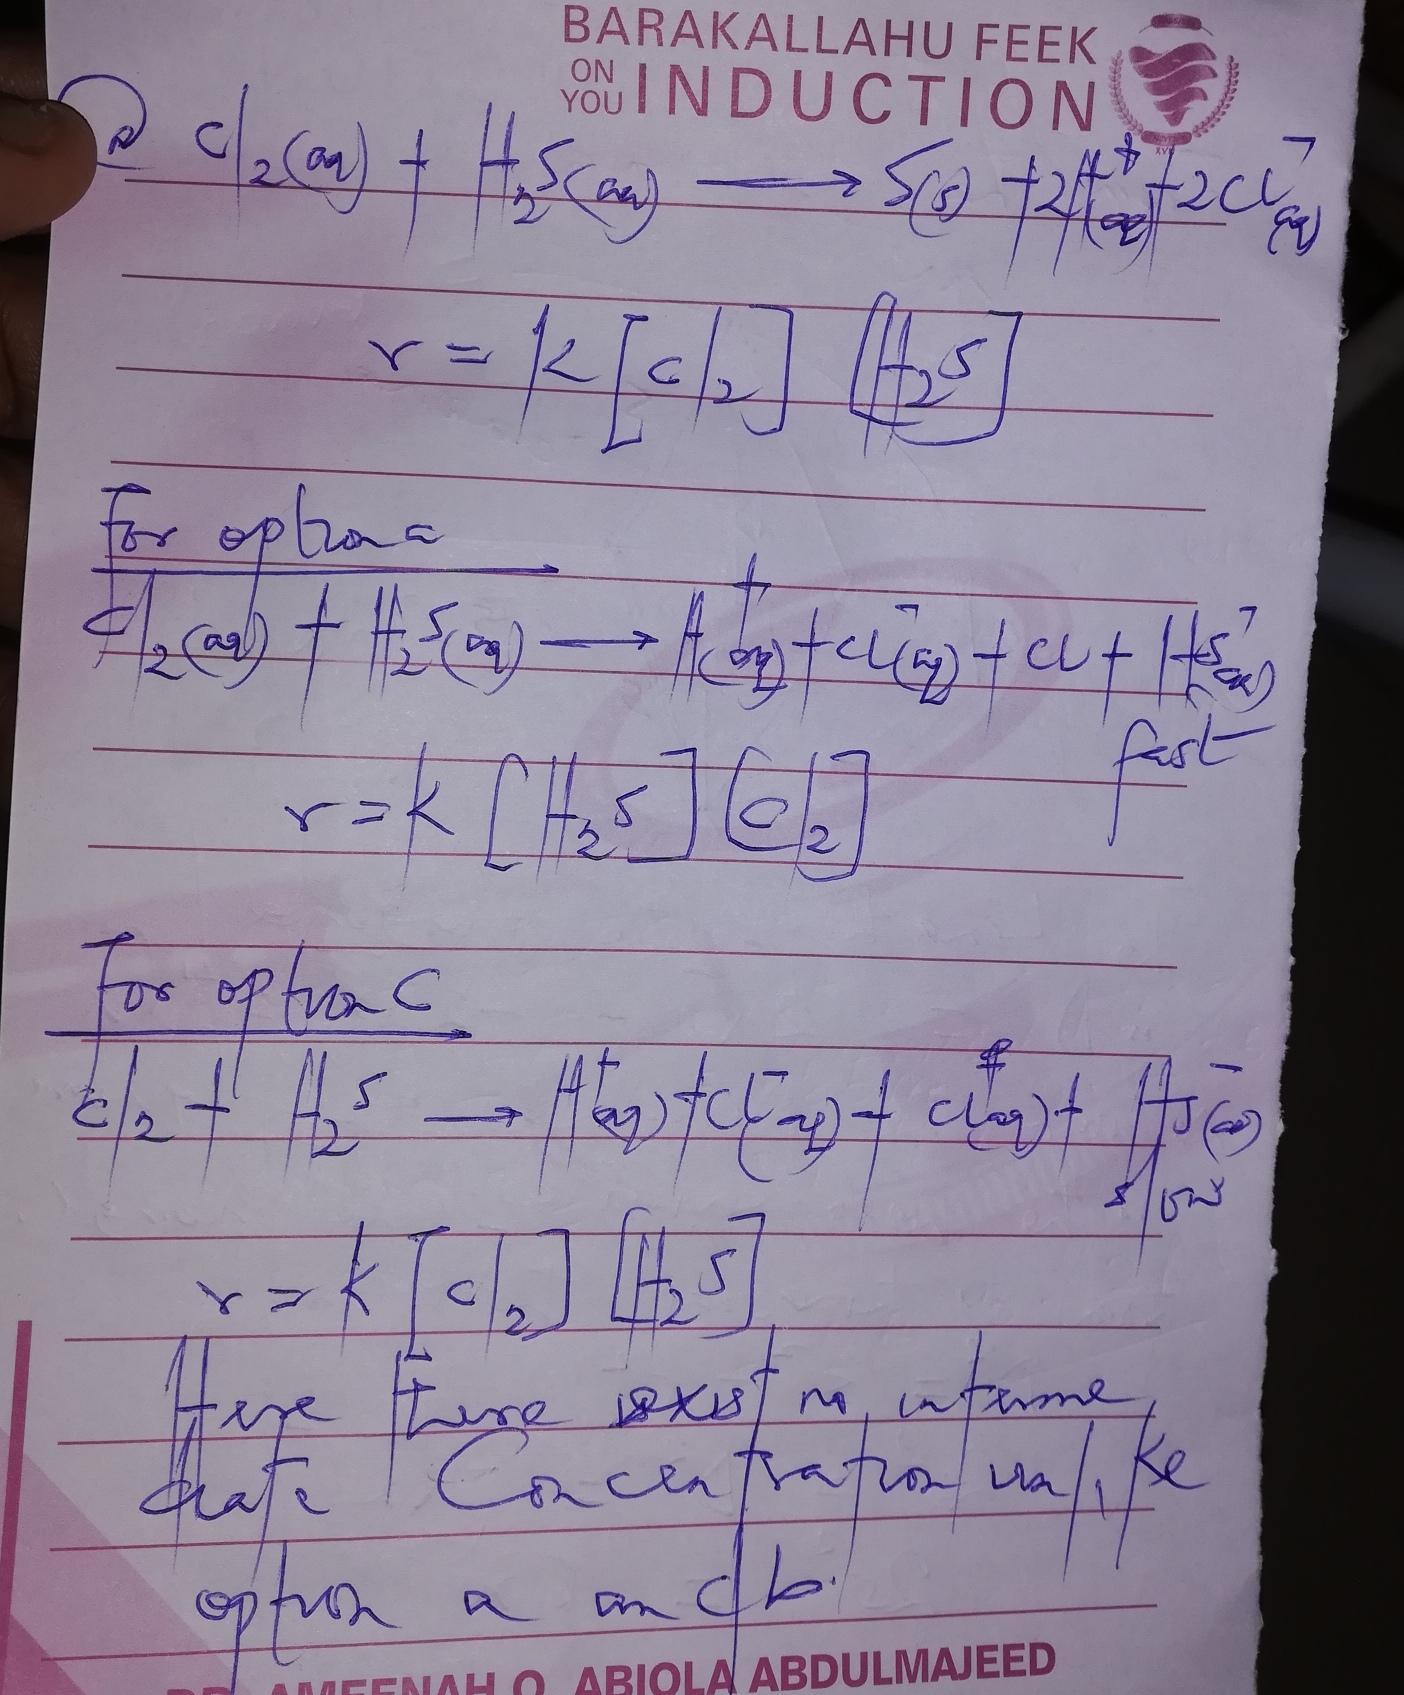 BARAKALLAHU FEEK
ON YOU INDUCTION
Cl2(aq) + H2S(aq) → S(s) + 2H+(aq) + 2Cl-(aq)
r = k [Cl2] [H2S]
For option a
Cl2(aq) + H2S(aq) → H+(aq) + Cl-(aq) + Cl + HS-(aq)
fast
r = k [H2S] [Cl2]
For option C
Cl2 + H2S → H+(aq) + Cl-(aq) + Cl+(aq) + HS-(aq)
slow
r = k [Cl2] [H2S]
Here there exist no interme
diate Concentration unlike
option a and b.
AMEENAH O. ABIOLA ABDULMAJEED